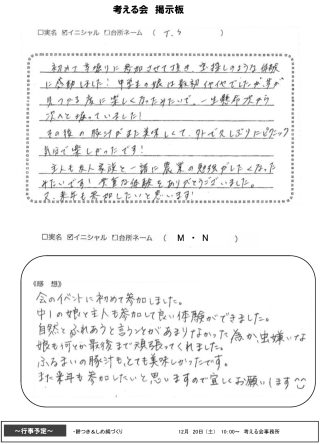 考える会 掲示板
□実名 ☑イニシャル □台所ネーム ( T. S )
初めて芋掘りに参加させて頂き、宝探しのような体験
に感動しました! 中学生の娘は最初イヤイヤでしたが、芋が
見つかる度に楽しくなったみたいで、一生懸命次から
次へと掘っていました!
その後の豚汁がまた美味しくて、外で久しぶりにピクニック
気分で楽しかったです!
主人も友人家族と一緒に農業の勉強がしたくなった
みたいです! 貴重な体験をありがとうございました。
又、来年も参加したいと思います!
□実名 ☑イニシャル □台所ネーム ( M ・ N )
《感 想》
会のイベントに初めて参加しました。
中1の娘と主人も参加して良い体験ができました。
自然とふれあうと言うことがあまりなかった為か虫嫌いな
娘も何とか最後まで頑張ってくれました。
ふるまいの豚汁も、とても美味しかったです。
また来年も参加したいと思いますので宜しくお願いします
～行事予定～ ・餅つき&しめ縄づくり 12月 20日(土) 10:00～ 考える会事務所